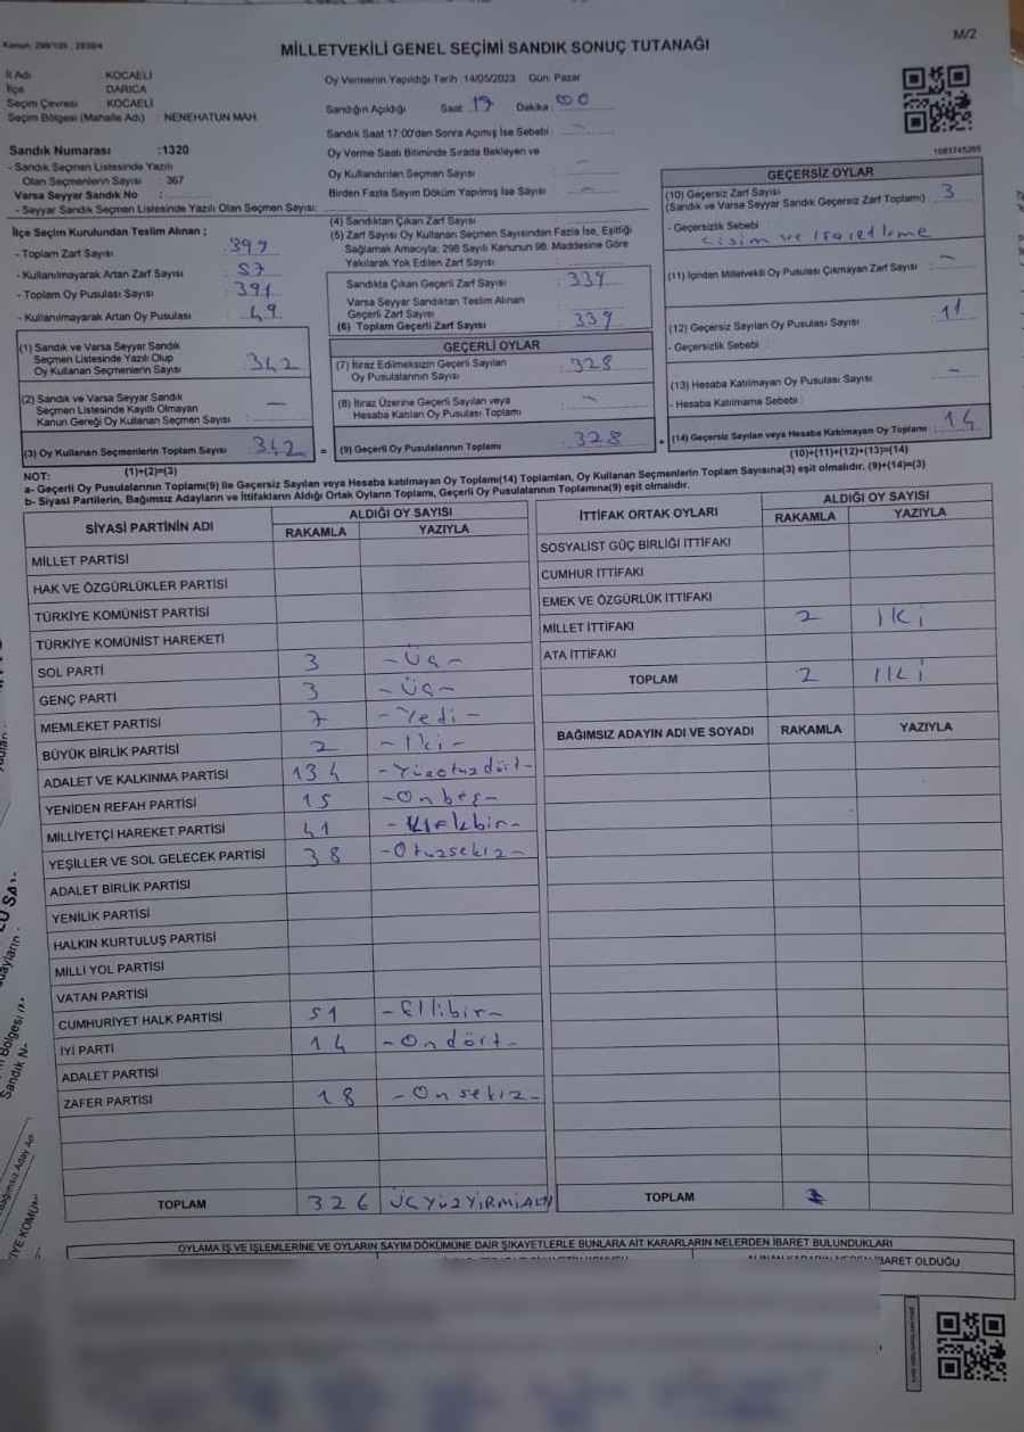 M/2
MİLLETVEKİLİ GENEL SEÇİMİ SANDIK SONUÇ TUTANAĞI
İl Adı : KOCAELİ
İlçe DARICA
Seçim Çevresi : KOCAELİ
Seçim Bölgesi (Mahalle Adı) : NENEHATUN MAH.
Sandık Numarası :1320
- Sandık Seçmen Listesinde Yazılı
Olan Seçmenlerin Sayısı : 367
Varsa Seyyar Sandık No :
- Seyyar Sandık Seçmen Listesinde Yazılı Olan Seçmen Sayısı:
Oy Vermenin Yapıldığı Tarih :14/05/2023 Gün: Pazar
Sandığın Açıldığı Saat: 17 Dakika: 00
Sandık Saat 17:00'den Sonra Açılmış İse Sebebi : -
Oy Verme Saati Bitiminde Sırada Bekleyen ve
Oy Kullandırılan Seçmen Sayısı : -
Birden Fazla Sayım Döküm Yapılmış İse Sayısı : -
İlçe Seçim Kurulundan Teslim Alınan ;
- Toplam Zarf Sayısı : 399
- Kullanılmayarak Artan Zarf Sayısı : 57
- Toplam Oy Pusulası Sayısı : 391
- Kullanılmayarak Artan Oy Pusulası : 49
(1) Sandık ve Varsa Seyyar Sandık
Seçmen Listesinde Yazılı Olup
Oy Kullanan Seçmenlerin Sayısı : 342
(2) Sandık ve Varsa Seyyar Sandık
Seçmen Listesinde Kayıtlı Olmayan
Kanun Gereği Oy Kullanan Seçmen Sayısı : -
(3) Oy Kullanan Seçmenlerin Toplam Sayısı : 342
(1)+(2)=(3)
(4) Sandıktan Çıkan Zarf Sayısı :
(5) Zarf Sayısı Oy Kullanan Seçmen Sayısından Fazla İse, Eşitliği
Sağlamak Amacıyla; 298 Sayılı Kanunun 98. Maddesine Göre
Yakılarak Yok Edilen Zarf Sayısı :
Sandıkta Çıkan Geçerli Zarf Sayısı : 339
Varsa Seyyar Sandıktan Teslim Alınan
Geçerli Zarf Sayısı :
(6) Toplam Geçerli Zarf Sayısı : 339
GEÇERLİ OYLAR
(7) İtiraz Edilmeksizin Geçerli Sayılan
Oy Pusulalarının Sayısı : 328
(8) İtiraz Üzerine Geçerli Sayılan veya
Hesaba Katılan Oy Pusulası Toplamı : -
= (9) Geçerli Oy Pusulalarının Toplamı : 328
GEÇERSİZ OYLAR
(10) Geçersiz Zarf Sayısı
(Sandık ve Varsa Seyyar Sandık Geçersiz Zarf Toplamı) : 3
- Geçersizlik Sebebi
Cisim ve İşaretleme
(11) İçinden Milletvekili Oy Pusulası Çıkmayan Zarf Sayısı : -
(12) Geçersiz Sayılan Oy Pusulası Sayısı : 11
- Geçersizlik Sebebi :
(13) Hesaba Katılmayan Oy Pusulası Sayısı : -
- Hesaba Katılmama Sebebi :
+ (14) Geçersiz Sayılan veya Hesaba Katılmayan Oy Toplamı : 14
(10)+(11)+(12)+(13)=(14)
NOT:
a- Geçerli Oy Pusulalarının Toplamı(9) İle Geçersiz Sayılan veya Hesaba katılmayan Oy Toplamı(14) Toplamları, Oy Kullanan Seçmenlerin Toplam Sayısına(3) eşit olmalıdır. (9)+(14)=(3)
b- Siyasi Partilerin, Bağımsız Adayların ve İttifakların Aldığı Ortak Oyların Toplamı, Geçerli Oy Pusulalarının Toplamına(9) eşit olmalıdır.
SİYASİ PARTİNİN ADI ALDIĞI OY SAYISI
RAKAMLA YAZIYLA
MİLLET PARTİSİ
HAK VE ÖZGÜRLÜKLER PARTİSİ
TÜRKİYE KOMÜNİST PARTİSİ
TÜRKİYE KOMÜNİST HAREKETİ
SOL PARTİ 3 - Üç -
GENÇ PARTİ 3 - Üç -
MEMLEKET PARTİSİ 7 - Yedi -
BÜYÜK BİRLİK PARTİSİ 2 - İki -
ADALET VE KALKINMA PARTİSİ 134 - Yüzotuzdört -
YENİDEN REFAH PARTİSİ 15 - Onbeş -
MİLLİYETÇİ HAREKET PARTİSİ 41 - Kırkbir -
YEŞİLLER VE SOL GELECEK PARTİSİ 38 - Otuzsekiz -
ADALET BİRLİK PARTİSİ
YENİLİK PARTİSİ
HALKIN KURTULUŞ PARTİSİ
MİLLİ YOL PARTİSİ
VATAN PARTİSİ
CUMHURİYET HALK PARTİSİ 51 - Ellibir -
İYİ PARTİ 14 - Ondört -
ADALET PARTİSİ
ZAFER PARTİSİ 18 - Onsekiz -
TOPLAM 326 ÜÇYÜZYİRMİALTI
İTTİFAK ORTAK OYLARI ALDIĞI OY SAYISI
RAKAMLA YAZIYLA
SOSYALİST GÜÇ BİRLİĞİ İTTİFAKI
CUMHUR İTTİFAKI
EMEK VE ÖZGÜRLÜK İTTİFAKI
MİLLET İTTİFAKI 2 İki
ATA İTTİFAKI
TOPLAM 2 İki
BAĞIMSIZ ADAYIN ADI VE SOYADI RAKAMLA YAZIYLA
TOPLAM
OYLAMA İŞ VE İŞLEMLERİNE VE OYLARIN SAYIM DÖKÜMÜNE DAİR ŞİKAYETLERLE BUNLARA AİT KARARLARIN NELERDEN İBARET BULUNDUKLARI
İBARET OLDUĞU